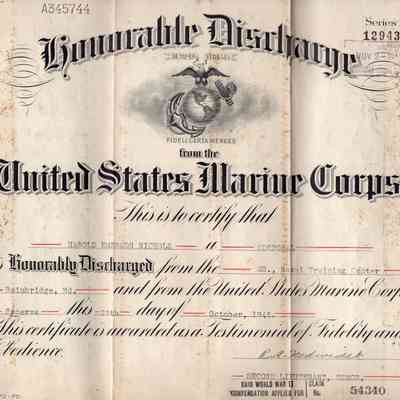 A345744
Series
12943
NOV 2
Honorable Discharge
SEMPER FIDELIS
FIDELI CERTA MERCES
from the
United States Marine Corps
This is to certify that
HAROLD EMERSON NICHOLS a CORPORAL
Honorably Discharged from the Naval Training Center
Bainbridge, Md. and from the United States Marine Corp
Reserve this day of October, 194
This certificate is awarded as a Testimonial of Fidelity and
Obedience.
SECOND LIEUTENANT, USMCR.
PAID WORLD WAR II CLAIM
COMPENSATION APPLIED FOR No. 54340